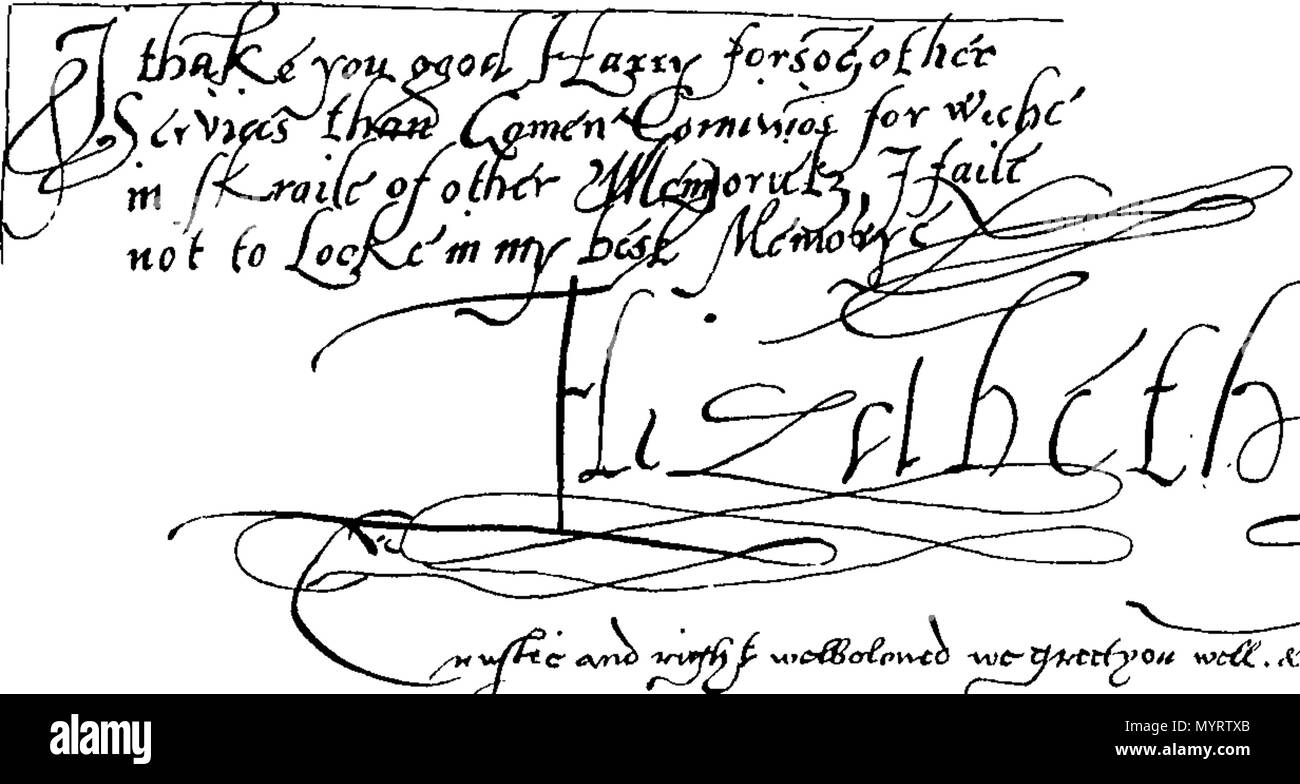 I thāke you good Harry for sōe other
Services than Comen for wiche
in of other I faile
not to Locke in my best Memorye
Elizabeth R
Trustie and right welbeloved we greet you well. &
alamy
Image ID: MYRTXB
www.alamy.com